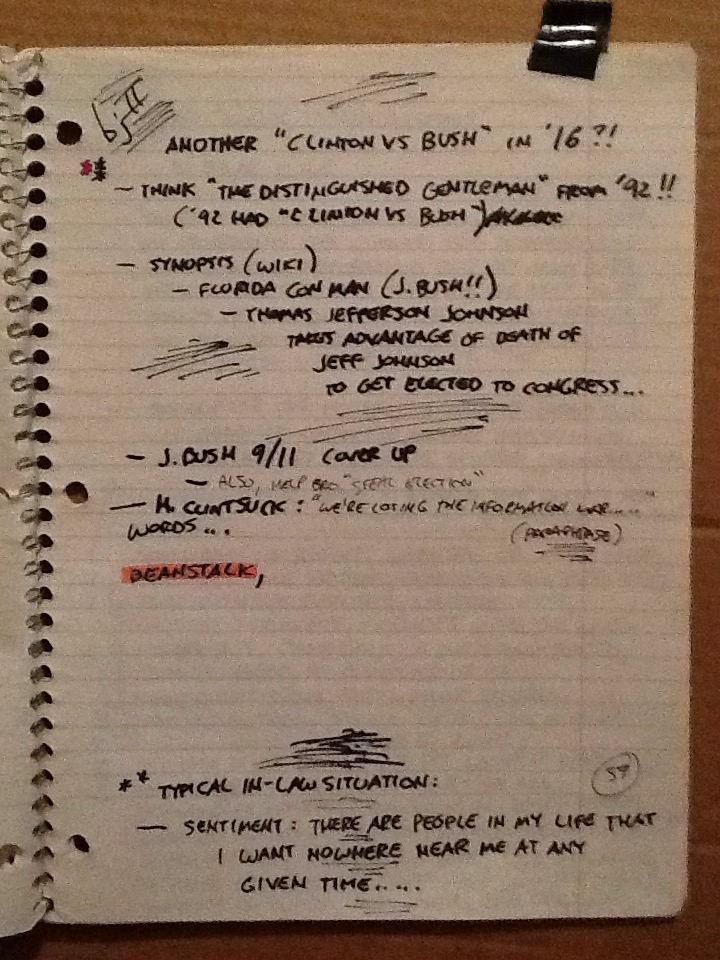 ANOTHER "CLINTON VS BUSH" IN '16?!
**
- THINK "THE DISTINGUISHED GENTLEMAN" FROM '92!!
('92 HAD "CLINTON VS BUSH")
- SYNOPSIS (WIKI)
- FLORIDA CON MAN (J. BUSH!!)
- THOMAS JEFFERSON JOHNSON
TAKES ADVANTAGE OF DEATH OF
JEFF JOHNSON
TO GET ELECTED TO CONGRESS...
- J. BUSH 9/11 COVER UP
- ALSO, HELP BRO "STEAL ELECTION"
- H. CLINTSUCK : "WE'RE LOSING THE INFORMATION WAR....."
WORDS... (PARAPHRASE)
BEANSTALK,
** TYPICAL IN-LAW SITUATION:
- SENTIMENT : THERE ARE PEOPLE IN MY LIFE THAT
I WANT NOWHERE NEAR ME AT ANY
GIVEN TIME.....